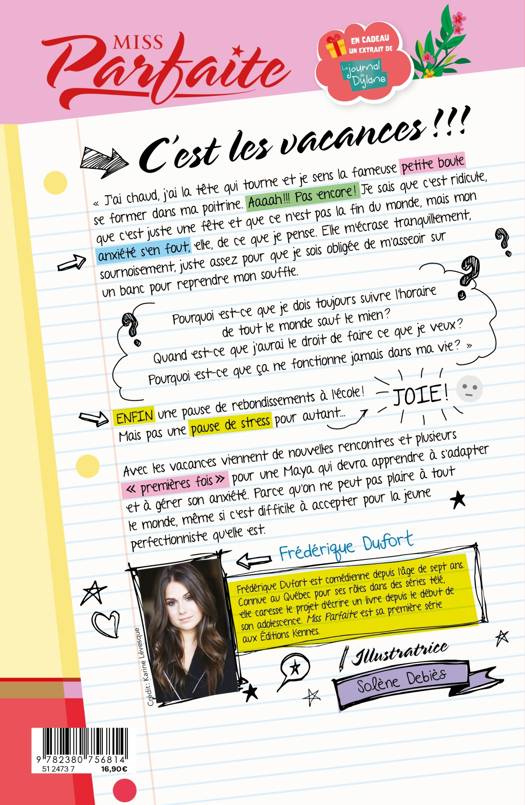 MISS
Parfaite
EN CADEAU
UN EXTRAIT DE
Le Journal
de
Dylane
C'est les vacances !!!
« J'ai chaud, j'ai la tête qui tourne et je sens la fameuse petite boule
se former dans ma poitrine. Aaaah!!! Pas encore! Je sais que c'est ridicule,
que c'est juste une fête et que ce n'est pas la fin du monde, mais mon
anxiété s'en fout, elle, de ce que je pense. Elle m'écrase tranquillement,
sournoisement, juste assez pour que je sois obligée de m'asseoir sur
un banc pour reprendre mon souffle.
Pourquoi est-ce que je dois toujours suivre l'horaire
de tout le monde sauf le mien?
Quand est-ce que j'aurai le droit de faire ce que je veux?
Pourquoi est-ce que ça ne fonctionne jamais dans ma vie? »
ENFIN une pause de rebondissements à l'école!
JOIE!
Mais pas une pause de stress pour autant...
Avec les vacances viennent de nouvelles rencontres et plusieurs
« premières fois » pour une Maya qui devra apprendre à s'adapter
et à gérer son anxiété. Parce qu'on ne peut pas plaire à tout
le monde, même si c'est difficile à accepter pour la jeune
perfectionniste qu'elle est.
Frédérique Dufort
Frédérique Dufort est comédienne depuis l'âge de sept ans.
Connue au Québec pour ses rôles dans des séries télé,
elle caresse le projet d'écrire un livre depuis le début de
son adolescence. Miss Parfaite est sa première série
aux Éditions Kennes.
Crédit: Karine Lévesque
Illustratrice
Solène Debiès
9 782380 756814
51 2473 7
16,90€